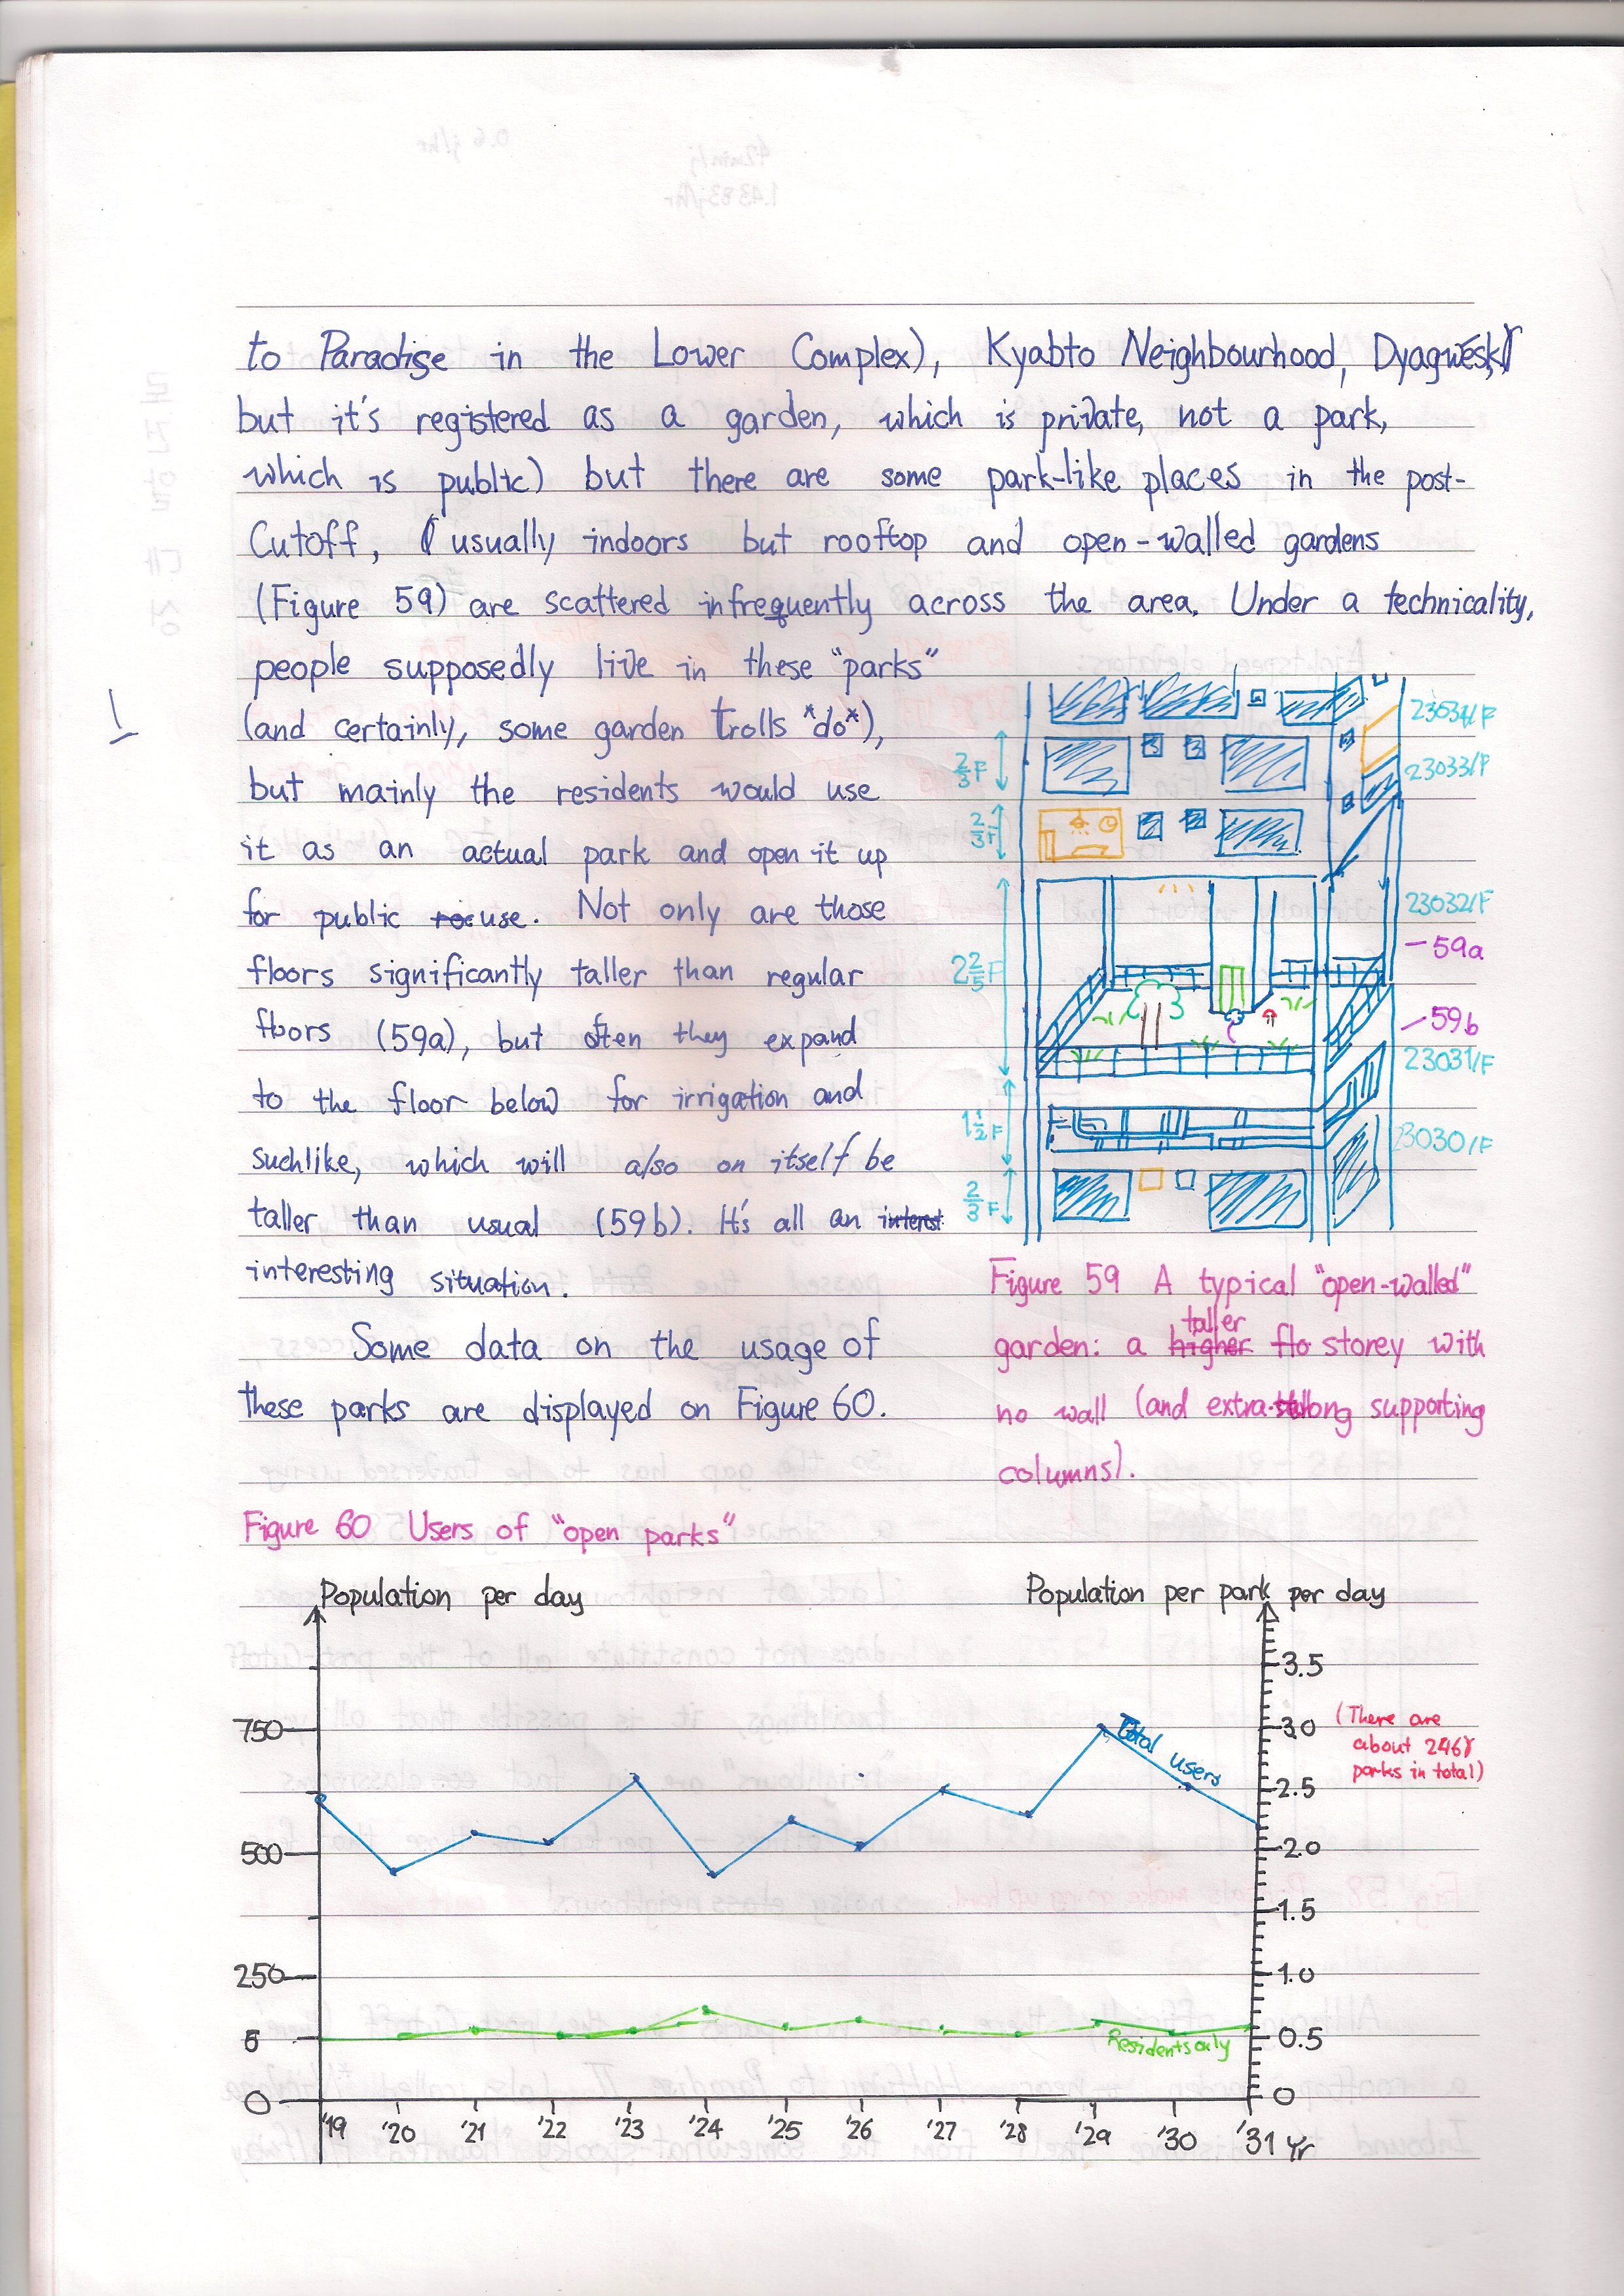 to Paradise in the Lower Complex), Kyabto Neighbourhood, Dyagwesk,
but it's registered as a garden, which is private, not a park,
which is public) but there are some park-like places in the post-
Cutoff, usually indoors but rooftop and open-walled gardens
(Figure 59) are scattered infrequently across the area. Under a technicality,
people supposedly live in these "parks"
(and certainly, some garden trolls *do*),
but mainly the residents would use
it as an actual park and open it up
for public use. Not only are those
floors significantly taller than regular
floors (59a), but often they expand
to the floor below for irrigation and
suchlike, which will also on itself be
taller than usual (59b). It's all an interest
interesting situation.
Some data on the usage of
these parks are displayed on Figure 60.
23034/F
2/3 F
23033/F
2/3 F
23032/F
59a
2 2/5 F
59b
23031/F
1 1/2 F
23030/F
2/3 F
Figure 59 A typical "open-walled"
taller
garden: a higher flo storey with
no wall (and extra-strong supporting
columns).
Figure 60 Users of "open parks"
Population per day
Population per park per day
750
500
250
0
3.5
3.0
2.5
2.0
1.5
1.0
0.5
0
(There are
about 246
parks in total)
Total users
Residents only
'19 '20 '21 '22 '23 '24 '25 '26 '27 '28 '29 '30 '31 Yr